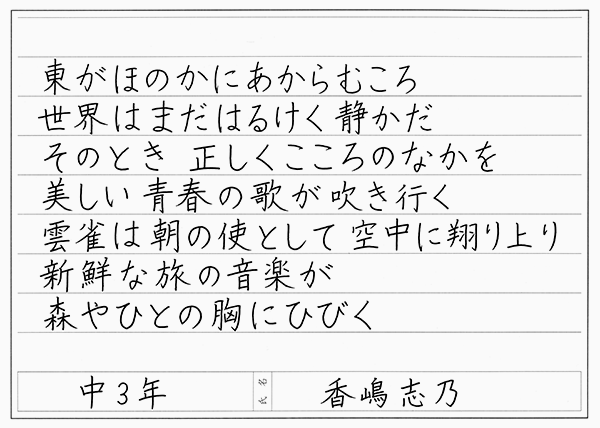 東がほのかにあからむころ
世界はまだはるけく静かだ
そのとき 正しくこころのなかを
美しい青春の歌が吹き行く
雲雀は朝の使として空中に翔り上り
新鮮な旅の音楽が
森やひとの胸にひびく
中3年 氏名 香嶋志乃